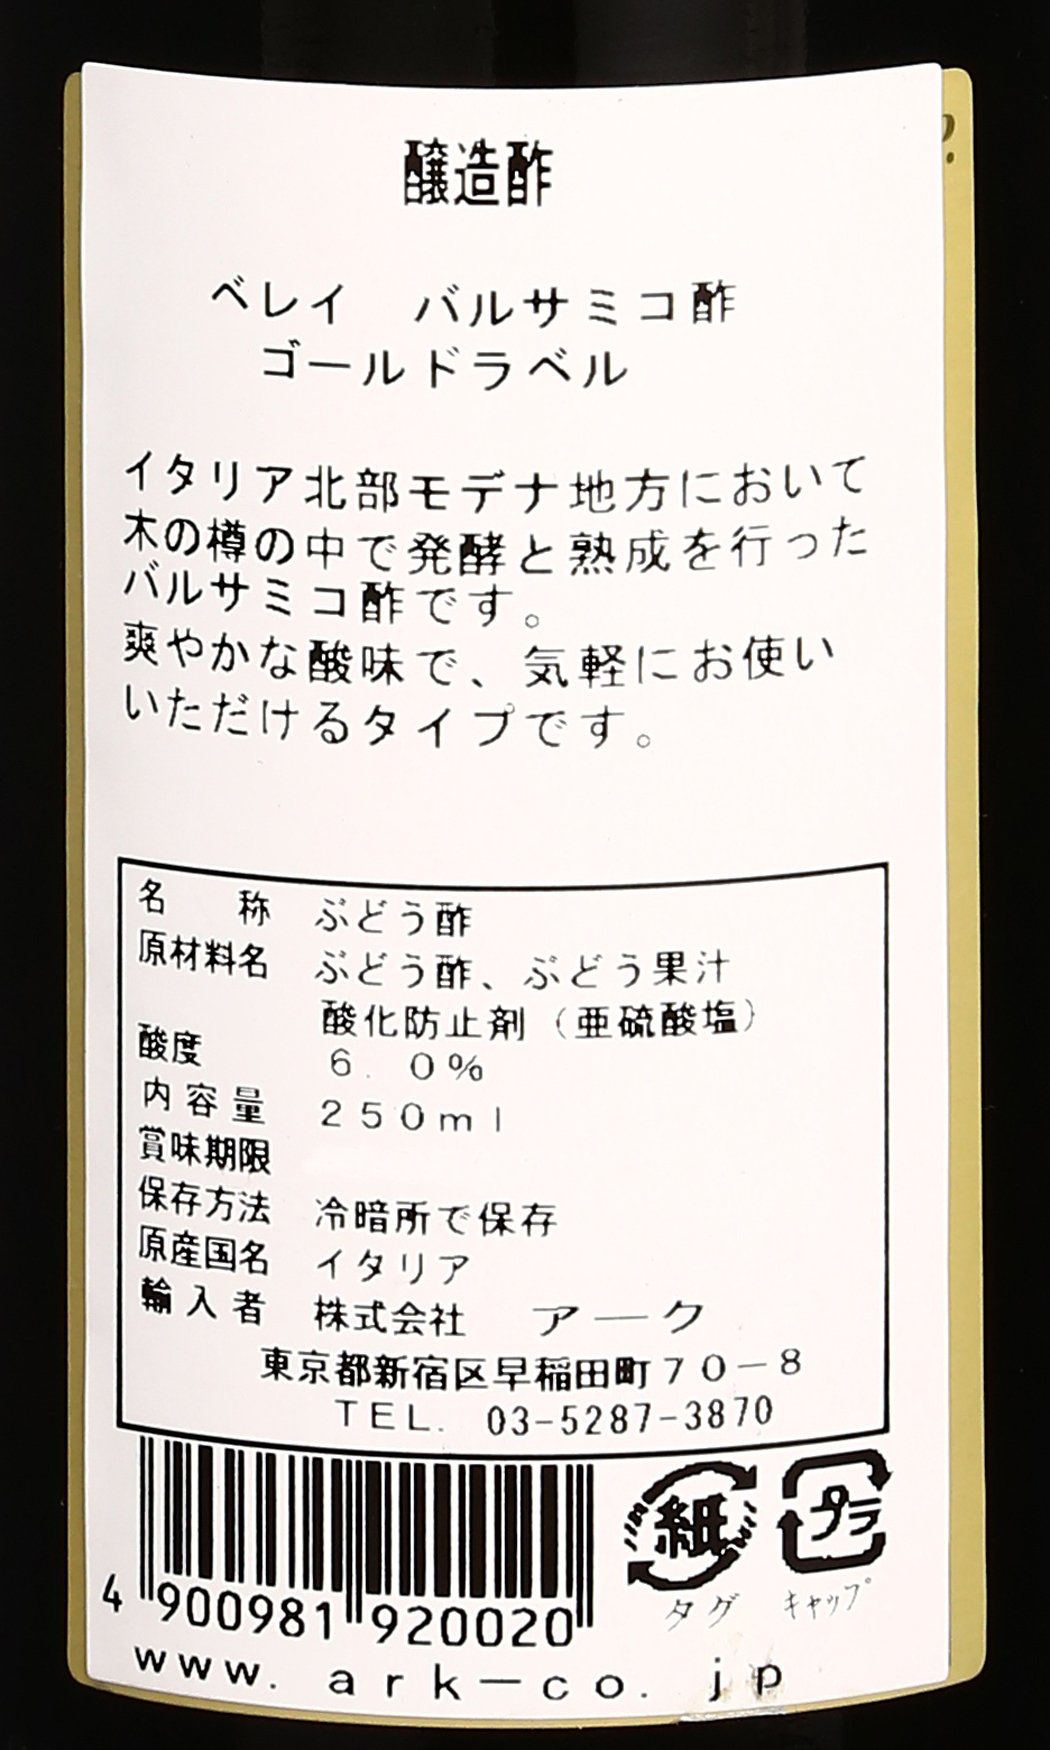 醸造酢
ベレイ　バルサミコ酢
ゴールドラベル
イタリア北部モデナ地方において
木の樽の中で発酵と熟成を行った
バルサミコ酢です。
爽やかな酸味で、気軽にお使い
いただけるタイプです。
名　　称　ぶどう酢
原材料名　ぶどう酢、ぶどう果汁
酸化防止剤（亜硫酸塩）
酸度　6．0％
内容量　250ml
賞味期限
保存方法　冷暗所で保存
原産国名　イタリア
輸入者　株式会社　アーク
東京都新宿区早稲田町70－8
TEL. 03-5287-3870
紙 プラ
タグ キャップ
4 900981 920020
www. ark－co. jp